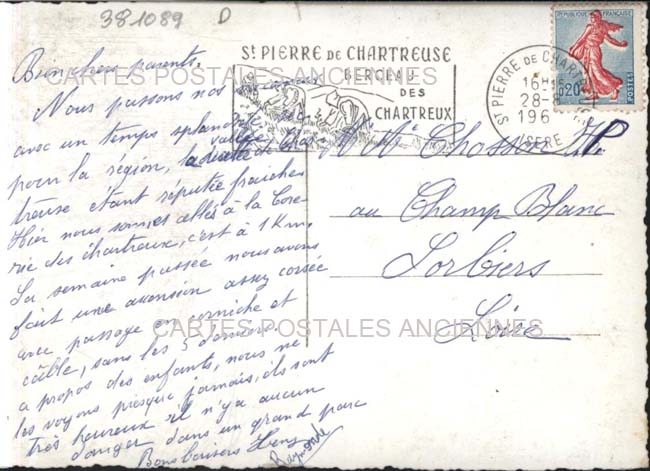 381089 D
St PIERRE DE CHARTREUSE
BERCEAU
DES
CHARTREUX
St PIERRE DE CHARTR
16H
28-8
196
ISERE
REPUBLIQUE FRANÇAISE
0,20
POSTES
CARTES POSTALES ANCIENNES
Bien chers parents.
Nous passons nos
avec un temps splen
pour la région, la vallée de Char
treuse étant réputée fraîche
Hier nous sommes allés à la Corre
rie des chartreux, c'est à 1 Km.
La semaine passée nous avons
fait une ascension assez corsée
avec passage en corniche et
câble, sans les 5 derniers.
a propos des enfants, nous ne
les voyons presque jamais, ils sont
très heureux il n'y a aucun
danger dans un grand parc
Bons baisers
Raymonde
Chosson
au Champ Blanc
Sorbiers
Loire
CARTES POSTALES ANCIENNES